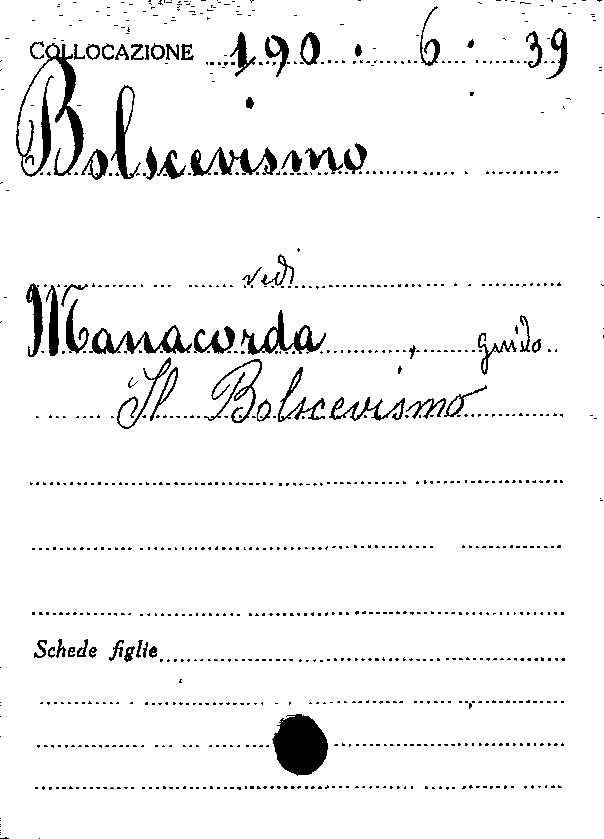 COLLOCAZIONE 190 . 6 . 39
Bolscevismo
vedi
Manacorda , guido
Il Bolscevismo
Schede figlie